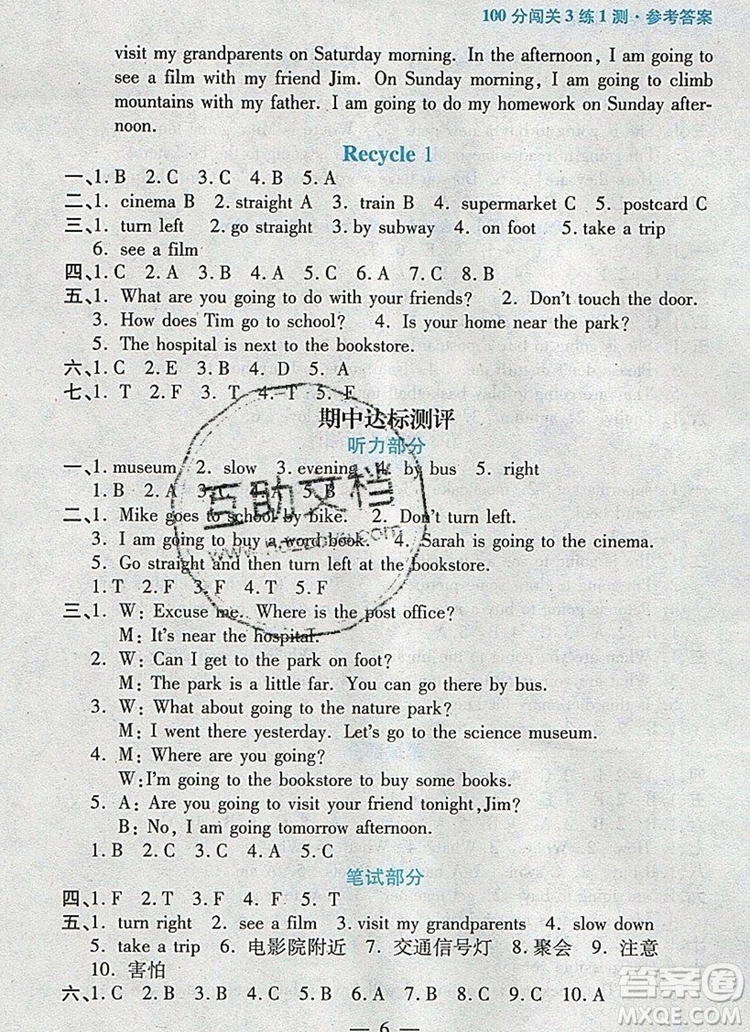 100分闯关3练1测·参考答案
visit my grandparents on Saturday morning. In the afternoon, I am going to
see a film with my friend Jim. On Sunday morning, I am going to climb
mountains with my father. I am going to do my homework on Sunday after-
noon.
Recycle 1
一、1. B 2. C 3. C 4. B 5. A
二、1. cinema B 2. straight A 3. train B 4. supermarket C 5. postcard C
三、1. turn left 2. go straight 3. by subway 4. on foot 5. take a trip
6. see a film
四、1. C 2. A 3. B 4. C 5. A 6. A 7. C 8. B
五、1. What are you going to do with your friends? 2. Don't touch the door.
3. How does Tim go to school? 4. Is your home near the park?
5. The hospital is next to the bookstore.
六、1. C 2. E 3. B 4. D 5. A
七、1. T 2. F 3. T 4. T 5. F
期中达标测评
听力部分
一、1. museum 2. slow 3. evening 4. by bus 5. right
1. B 2. A 3. C 4. A 5. B
二、1. Mike goes to school by bike. 2. Don't turn left.
3. I am going to buy a word book. 4. Sarah is going to the cinema.
5. Go straight and then turn left at the bookstore.
1. T 2. F 3. T 4. F 5. F
三、1. W: Excuse me. Where is the post office?
M: It's near the hospital.
2. W: Can I get to the park on foot?
M: The park is a little far. You can go there by bus.
3. W: What about going to the nature park?
M: I went there yesterday. Let's go to the science museum.
4. M: Where are you going?
W: I'm going to the bookstore to buy some books.
5. A: Are you going to visit your friend tonight, Jim?
B: No, I am going tomorrow afternoon.
1. B 2. C 3. C 4. A 5. B
笔试部分
四、1. F 2. T 3. F 4. F 5. T
五、1. turn right 2. see a film 3. visit my grandparents 4. slow down
5. take a trip 6. 电影院附近 7. 交通信号灯 8. 聚会 9. 注意
10. 害怕
六、1. C 2. B 3. C 4. A 5. A 6. B 7. C 8. C 9. C 10. A
— 6 —
互助文档
答案圈
MXQE.COM